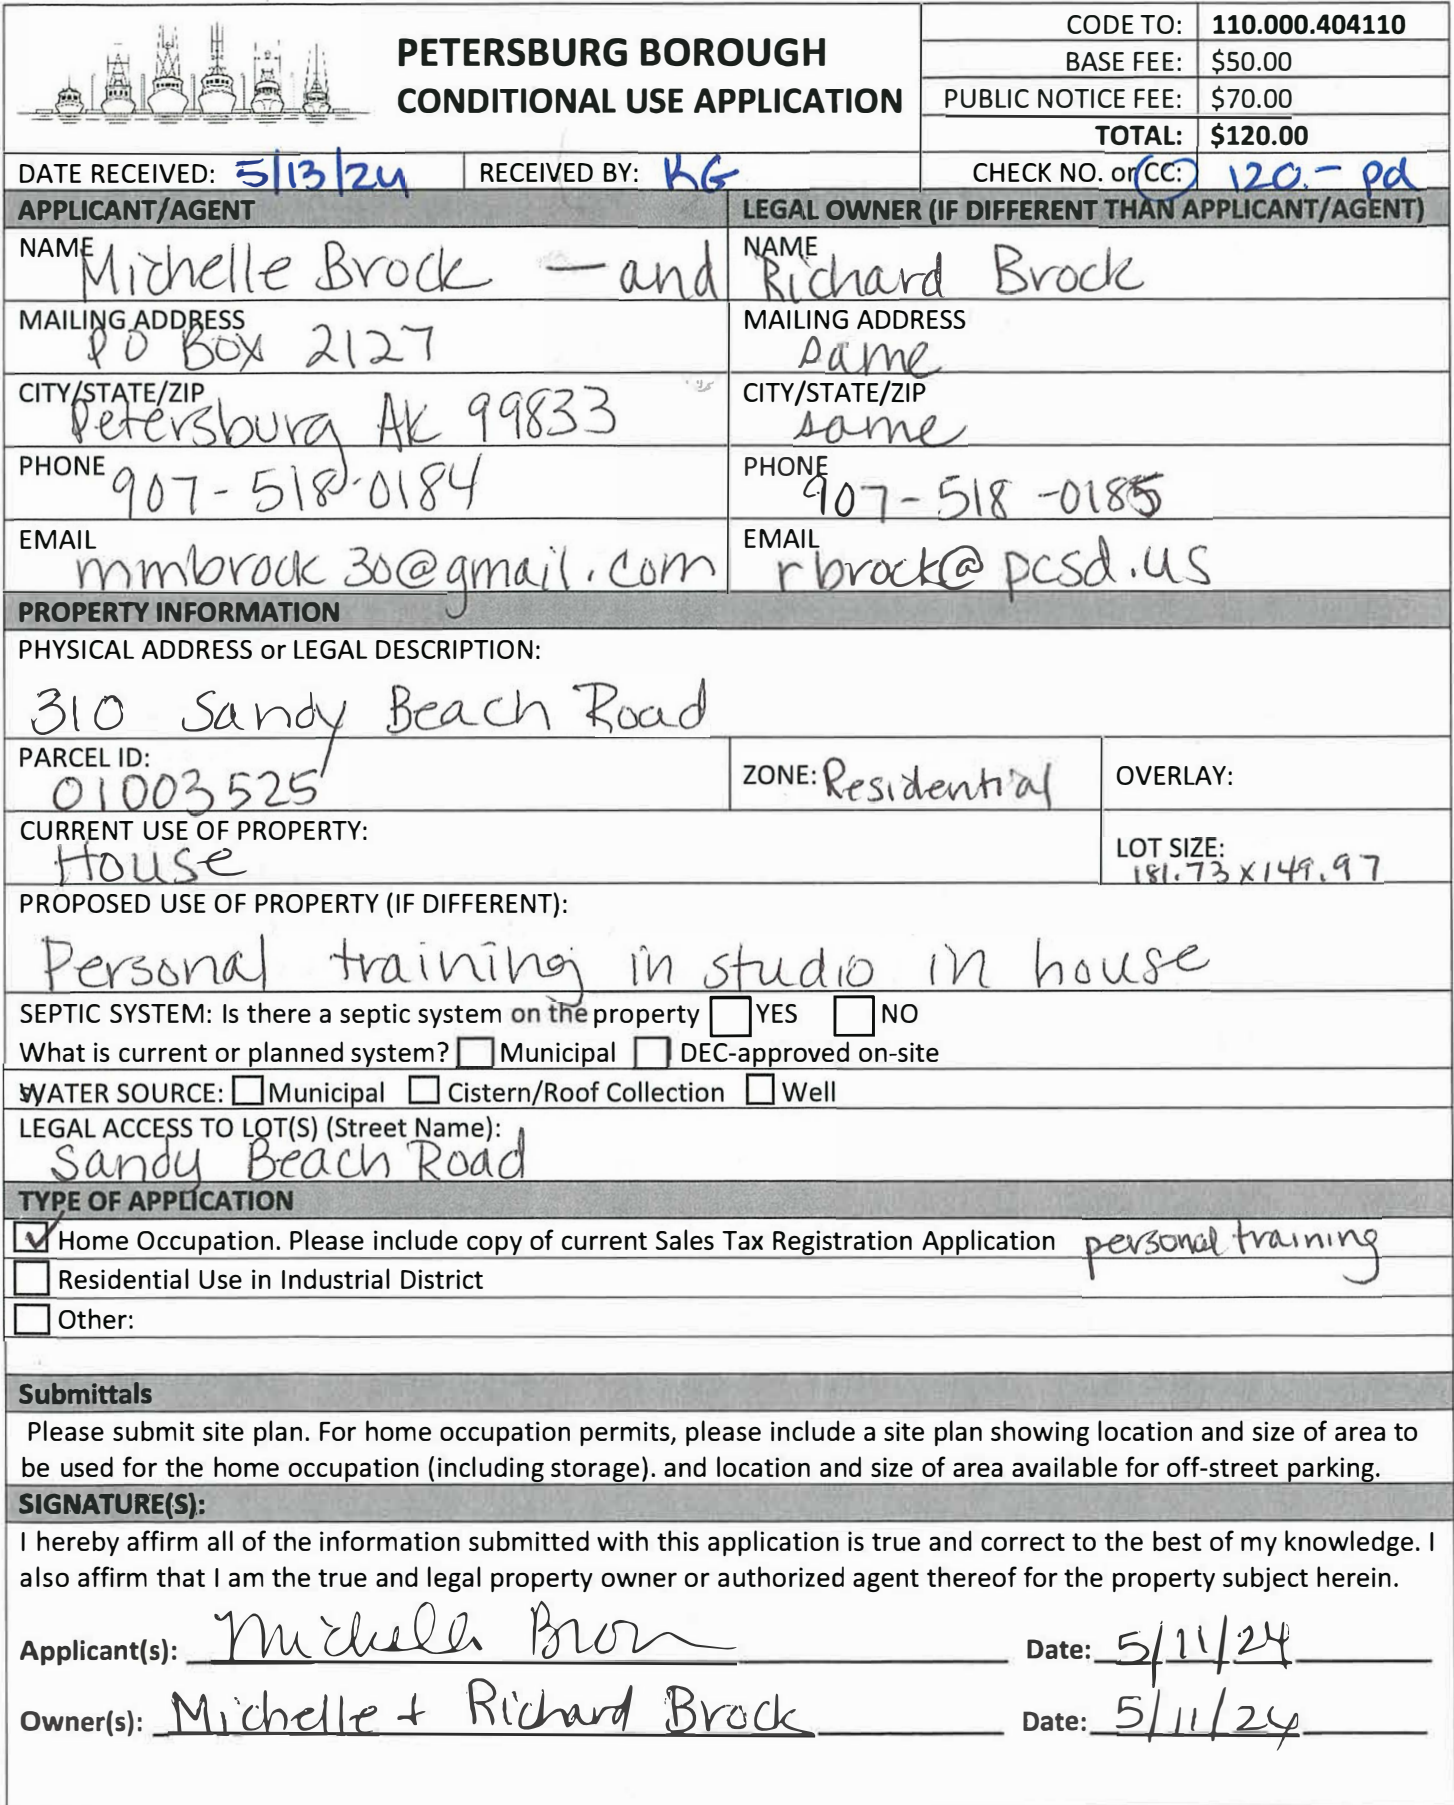 PETERSBURG BOROUGH
CONDITIONAL USE APPLICATION
CODE TO: 110.000.404110
BASE FEE: $50.00
PUBLIC NOTICE FEE: $70.00
TOTAL: $120.00
DATE RECEIVED: 5/13/24 RECEIVED BY: KG CHECK NO. or CC: 120.- pd
APPLICANT/AGENT LEGAL OWNER (IF DIFFERENT THAN APPLICANT/AGENT)
NAME Michelle Brock - and NAME Richard Brock
MAILING ADDRESS PO Box 2127 MAILING ADDRESS same
CITY/STATE/ZIP Petersburg AK 99833 CITY/STATE/ZIP same
PHONE 907-518-0184 PHONE 907-518-0185
EMAIL mmbrock30@gmail.com EMAIL rbrock@pcsd.us
PROPERTY INFORMATION
PHYSICAL ADDRESS or LEGAL DESCRIPTION:
310 Sandy Beach Road
PARCEL ID: 01003525 ZONE: Residential OVERLAY:
CURRENT USE OF PROPERTY: House LOT SIZE: 181.73 x 149.97
PROPOSED USE OF PROPERTY (IF DIFFERENT):
Personal training in studio in house
SEPTIC SYSTEM: Is there a septic system on the property YES NO
What is current or planned system? Municipal DEC-approved on-site
WATER SOURCE: Municipal Cistern/Roof Collection Well
LEGAL ACCESS TO LOT(S) (Street Name):
Sandy Beach Road
TYPE OF APPLICATION
Home Occupation. Please include copy of current Sales Tax Registration Application personal training
Residential Use in Industrial District
Other:
Submittals
Please submit site plan. For home occupation permits, please include a site plan showing location and size of area to
be used for the home occupation (including storage). and location and size of area available for off-street parking.
SIGNATURE(S):
I hereby affirm all of the information submitted with this application is true and correct to the best of my knowledge. I
also affirm that I am the true and legal property owner or authorized agent thereof for the property subject herein.
Applicant(s): Michelle Brock Date: 5/11/24
Owner(s): Michelle + Richard Brock Date: 5/11/24